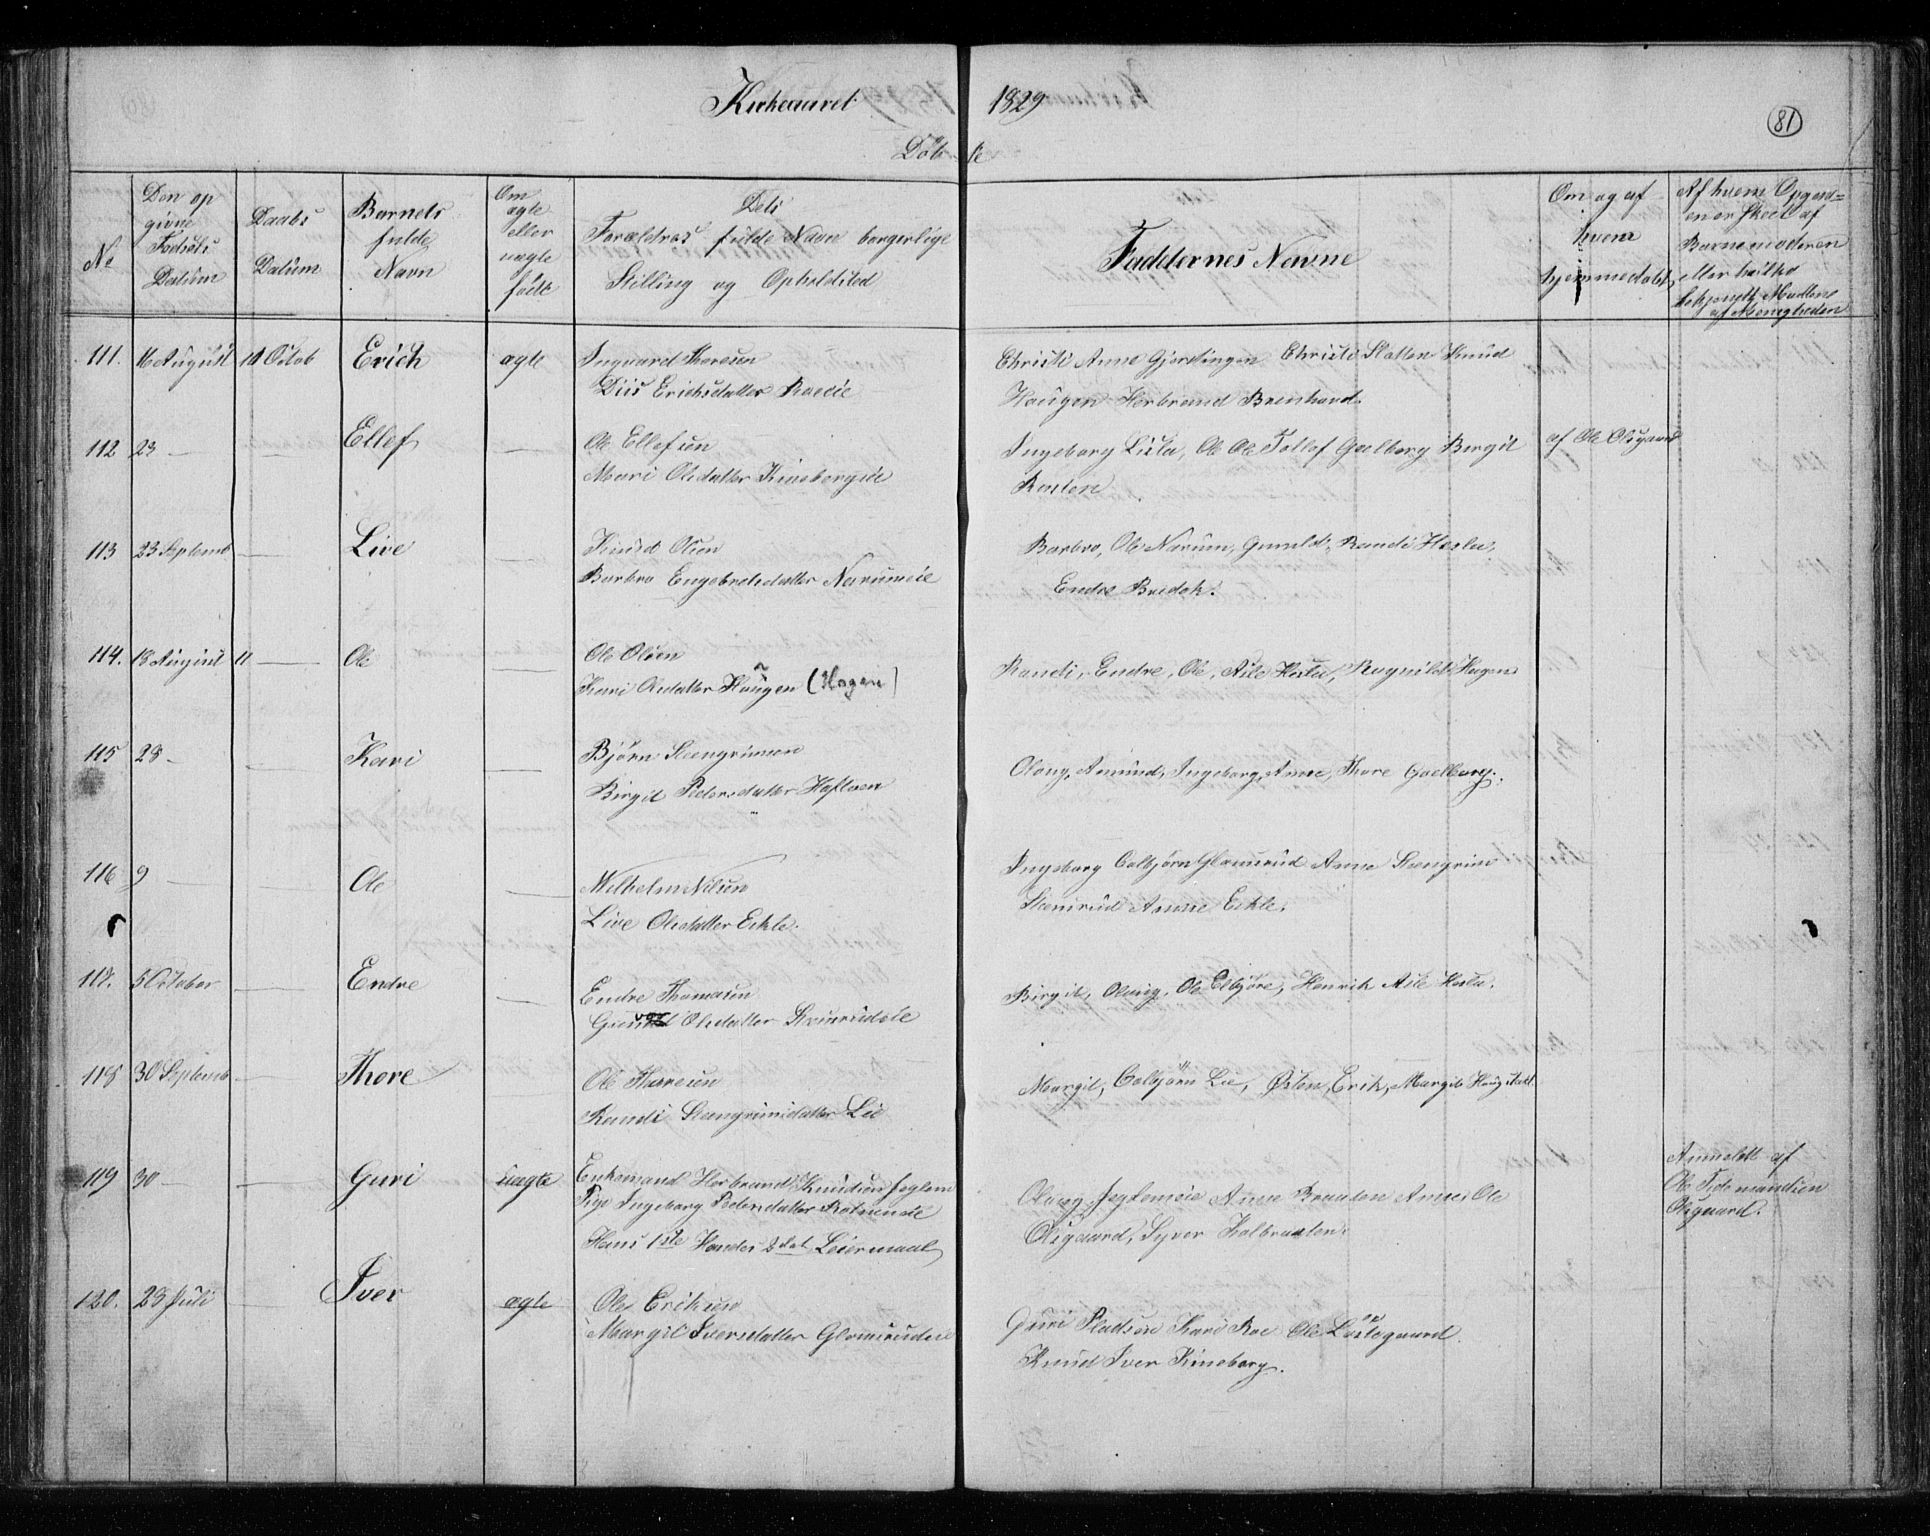 Kirkeaaret 1829
81
Døbte
No
Den op
givne
Fødsels
Datum
Daabs
Datum
Barnets
fulde
Navn
Om
ægte
eller
uægte
født
Dets
Forældres fulde Navn borgerlige
Stilling og Opholdsted
Faddernes Navne
Om og af
hvem
hjemmedøbt
Af hvem Opgivel=
en er skeet af
Barnemoderen
eller hvilke
bekjendte Mænd
af Menigheden
111. 16 August 10 Octob Erich ægte Ingvard Thoresen
Erichsdatter Roeeie
Christi Anne Gjerstingen Christi Slatten Knud
Haugen Herbrand Brenhovd.
112 23 — — Ellef — Ole Ellefsen
Mari Olsdatter Kinsbergeie
Ingeborg Lista, Ole Ole Tollef Goelberg Birgit
Rusten
af Ole Olsgaard
113 23 Septemb — Live — Knud Olsen
Barbro Engebretsdatter Narumeie
Barbro, Ole Narum, Gunild, Randi Hesla,
Endre Bredok.
114. 18 August 11 — Ole — Ole Olsen
Kari Olsdatter Haugen (Hagen)
Randi, Endre, Ole, Asle Hesla, Ragnild Hagen
115 28 — — Kari — Bjørn Steengrimsen
Birgit Pedersdatter Haftoen
Olaug, Amund, Ingeborg, Anne, Thore Goelberg.
116 9 — — Ole — Wilhelm Nilsen
Live Olsdatter Eikle.
Ingeborg Colbjørn Glomsrud Anne Steengrim
Anne Eikle.
117. 5 October — Endre — Endre Thomasen
Olsdatter
Birgit, Olaug, Ole Elbjøre, Henrik Asle Hesla.
118 30 Septemb — Thore — Ole Thoresen
Randi Steengrimsdatter Lie
Margit, Colbjørn Lie, Østen, Erik, Margit Haugstad
119 30 — — Guri uægte Enkemand Herbrand Knudsen Jeglem
Pige Ingeborg Pedersdatter
Hans 1ste Hendes 2det Leiermaal
Olaug Jeglemeie Anne Braaten Anne Ole
Olsgaard, Syver Kalbraaten.
Anmeldt af
Ole Tidemandsen
Olsgaard.
120. 23 Juli — Iver ægte Ole Eriksen
Margit Iversdatter Glomsrudeie
Guri Pladsen Kari Roe Ole Lostegaard
Knud Iver Kinsberg.